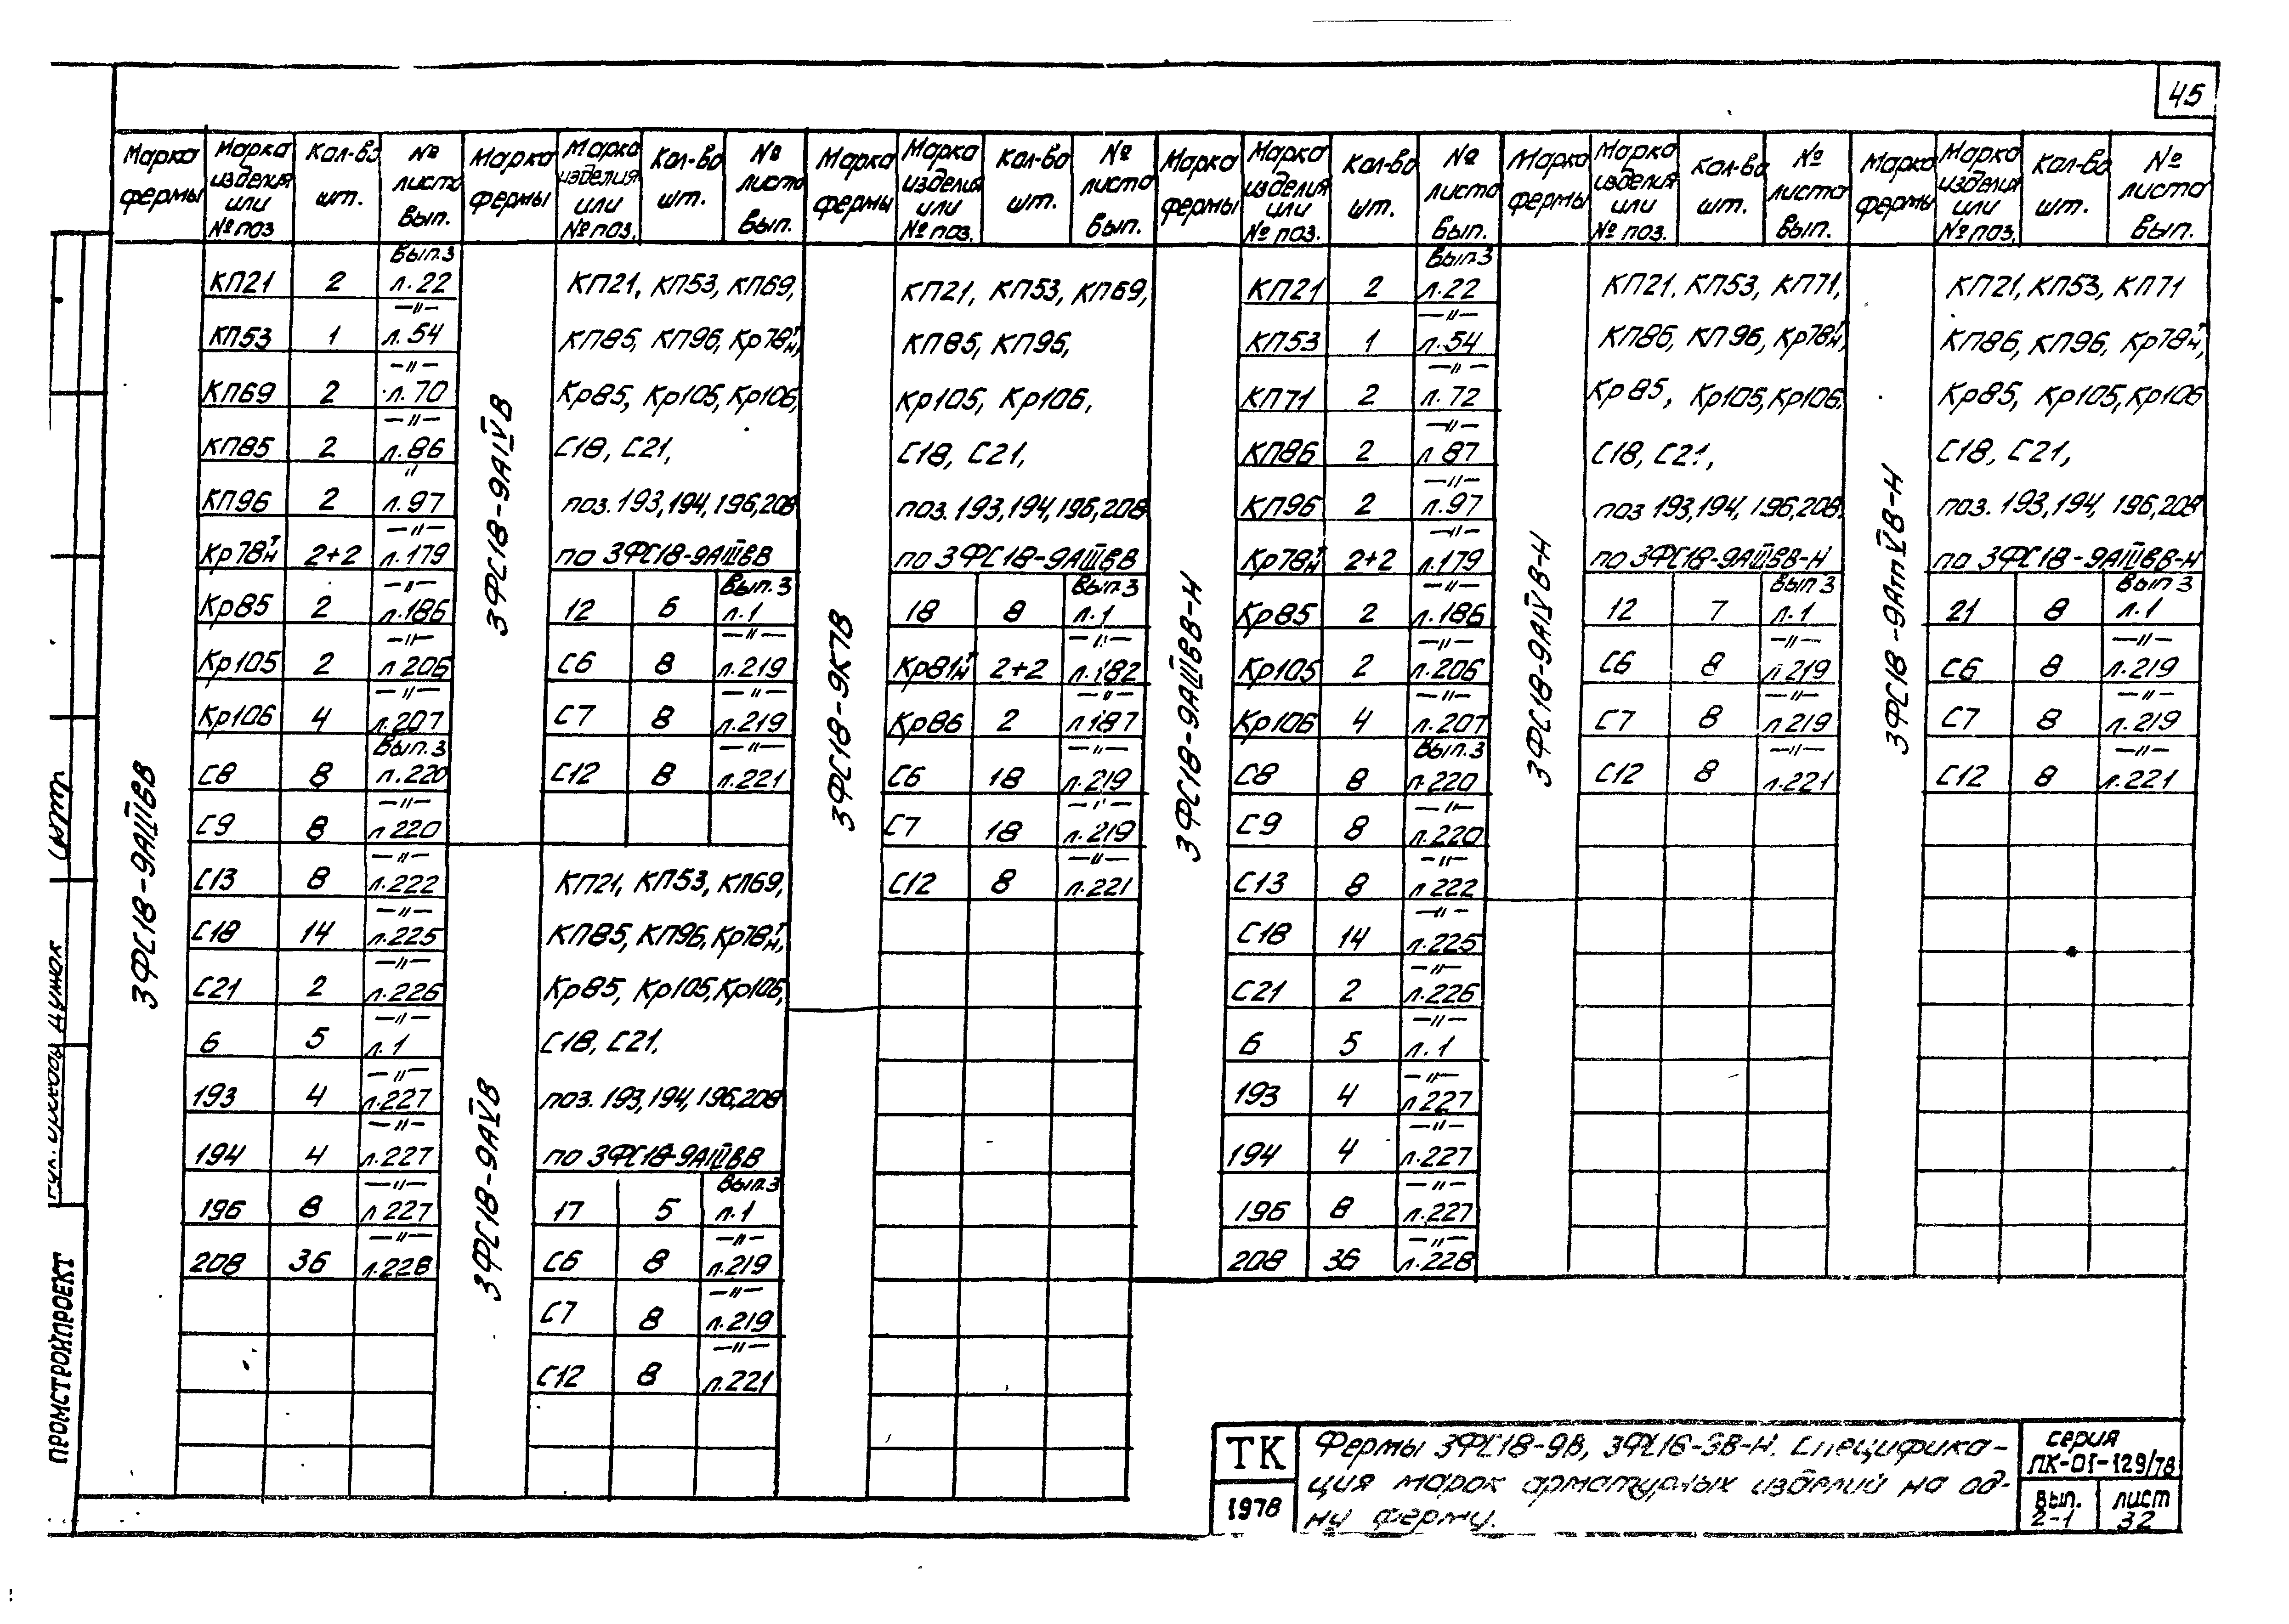 45
Марка фермы | Марка изделия или № поз | Кол-во шт. | № листа Вып.
3ФС18-9АIIIвВ
КП21 2 Вып.3 л.22
КП53 1 —〃— л.54
КП69 2 —〃— л.70
КП85 2 —〃— л.86
КП96 2 〃 л.97
Кр78тн 2+2 —〃— л.179
Кр85 2 —〃— л.186
Кр105 2 —〃— л 206
Кр106 4 —〃— л.207
С8 8 Вып.3 л.220
С9 8 —〃— л 220
С13 8 —〃— л.222
С18 14 —〃— л.225
С21 2 —〃— л.226
6 5 —〃— л.1
193 4 —〃— л.227
194 4 —〃— л.227
196 8 —〃— л 227
208 36 —〃— л.228
Марка фермы | Марка изделия или № поз. | Кол-во шт. | № листа Вып.
3ФС18-9АIVВ
КП21, КП53, КП69,
КП85, КП96, Кр78тн,
Кр85, Кр105, Кр106,
С18, С21,
поз. 193, 194, 196, 208
по 3ФС18-9АIIIвВ
12 6 Вып. 3 л.1
С6 8 —〃— л.219
С7 8 —〃— л.219
С12 8 —〃— л.221
3ФС18-9АVВ
КП21, КП53, КП69,
КП85, КП96, Кр78тн,
Кр85, Кр105, Кр106,
С18, С21,
поз. 193, 194, 196, 208
по 3ФС18-9АIIIвВ
17 5 Вып.3 л.1
С6 8 —〃— л.219
С7 8 —〃— л.219
С12 8 —〃— л.221
Марка фермы | Марка изделия или № поз. | Кол-во шт. | № листа Вып.
3ФС18-9К7В
КП21, КП53, КП69,
КП85, КП96,
Кр105, Кр106,
С18, С21,
поз. 193, 194, 196, 208
по 3ФС18-9АIIIвВ
18 8 Вып.3 л.1
Кр81тн 2+2 —〃— л.182
Кр86 2 —〃— л 187
С6 18 —〃— л.219
С7 18 —〃— л.219
С12 8 —〃— л.221
Марка фермы | Марка изделия или № поз. | Кол-во шт. | № листа Вып.
3ФС18-9АIIIвВ-Н
КП21 2 Вып3 л.22
КП53 1 —〃— л.54
КП71 2 —〃— л.72
КП86 2 —〃— л 87
КП96 2 —〃— л.97
Кр78тн 2+2 —〃— л.179
Кр85 2 —〃— л.186
Кр105 2 —〃— л.206
Кр106 4 —〃— л.207
С8 8 Вып.3 л 220
С9 8 —〃— л.220
С13 8 —〃— л 222
С18 14 —〃— л.225
С21 2 —〃— л.226
6 5 —〃— л.1
193 4 —〃— л 227
194 4 —〃— л.227
196 8 —〃— л.227
208 36 —〃— л.228
Марка фермы | Марка изделия или № поз. | Кол-во шт. | № листа Вып.
3ФС18-9АIVВ-Н
КП21, КП53, КП71,
КП86, КП96, Кр78тн,
Кр85, Кр105, Кр106,
С18, С21,
поз 193, 194, 196, 208,
по 3ФС18-9АIIIвВ-Н
12 7 Вып 3 л.1
С6 8 —〃— л 219
С7 8 —〃— л 219
С12 8 —〃— л.221
Марка фермы | Марка изделия или № поз. | Кол-во шт. | № листа Вып.
3ФС18-9АтVВ-Н
КП21, КП53, КП71
КП86, КП96, Кр78тн,
Кр85, Кр105, Кр106
С18, С21,
поз. 193, 194, 196, 208
по 3ФС18-9АIIIвВ-Н
21 8 Вып 3 л.1
С6 8 —〃— л.219
С7 8 —〃— л.219
С12 8 —〃— л.221
ПРОМСТРОЙПРОЕКТ
ТК
1978
Фермы 3ФС18-9В, 3ФС18-9В-Н. Специфика-
ция марок арматурных изделий на од-
ну ферму.
серия
ПК-01-129/78
Вып. 2-1
лист 32